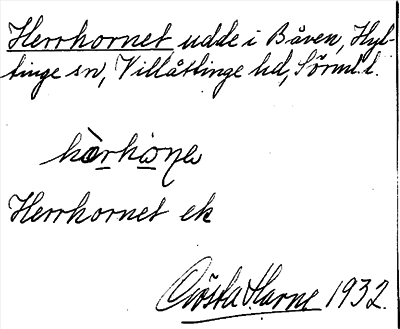 Herrhornet udde i Båven, Hyl-
tinge sn, Villåttinge hd, Sörml. l.
hèrhoṇe
Herrhornet ek
Gösta Harne 1932.